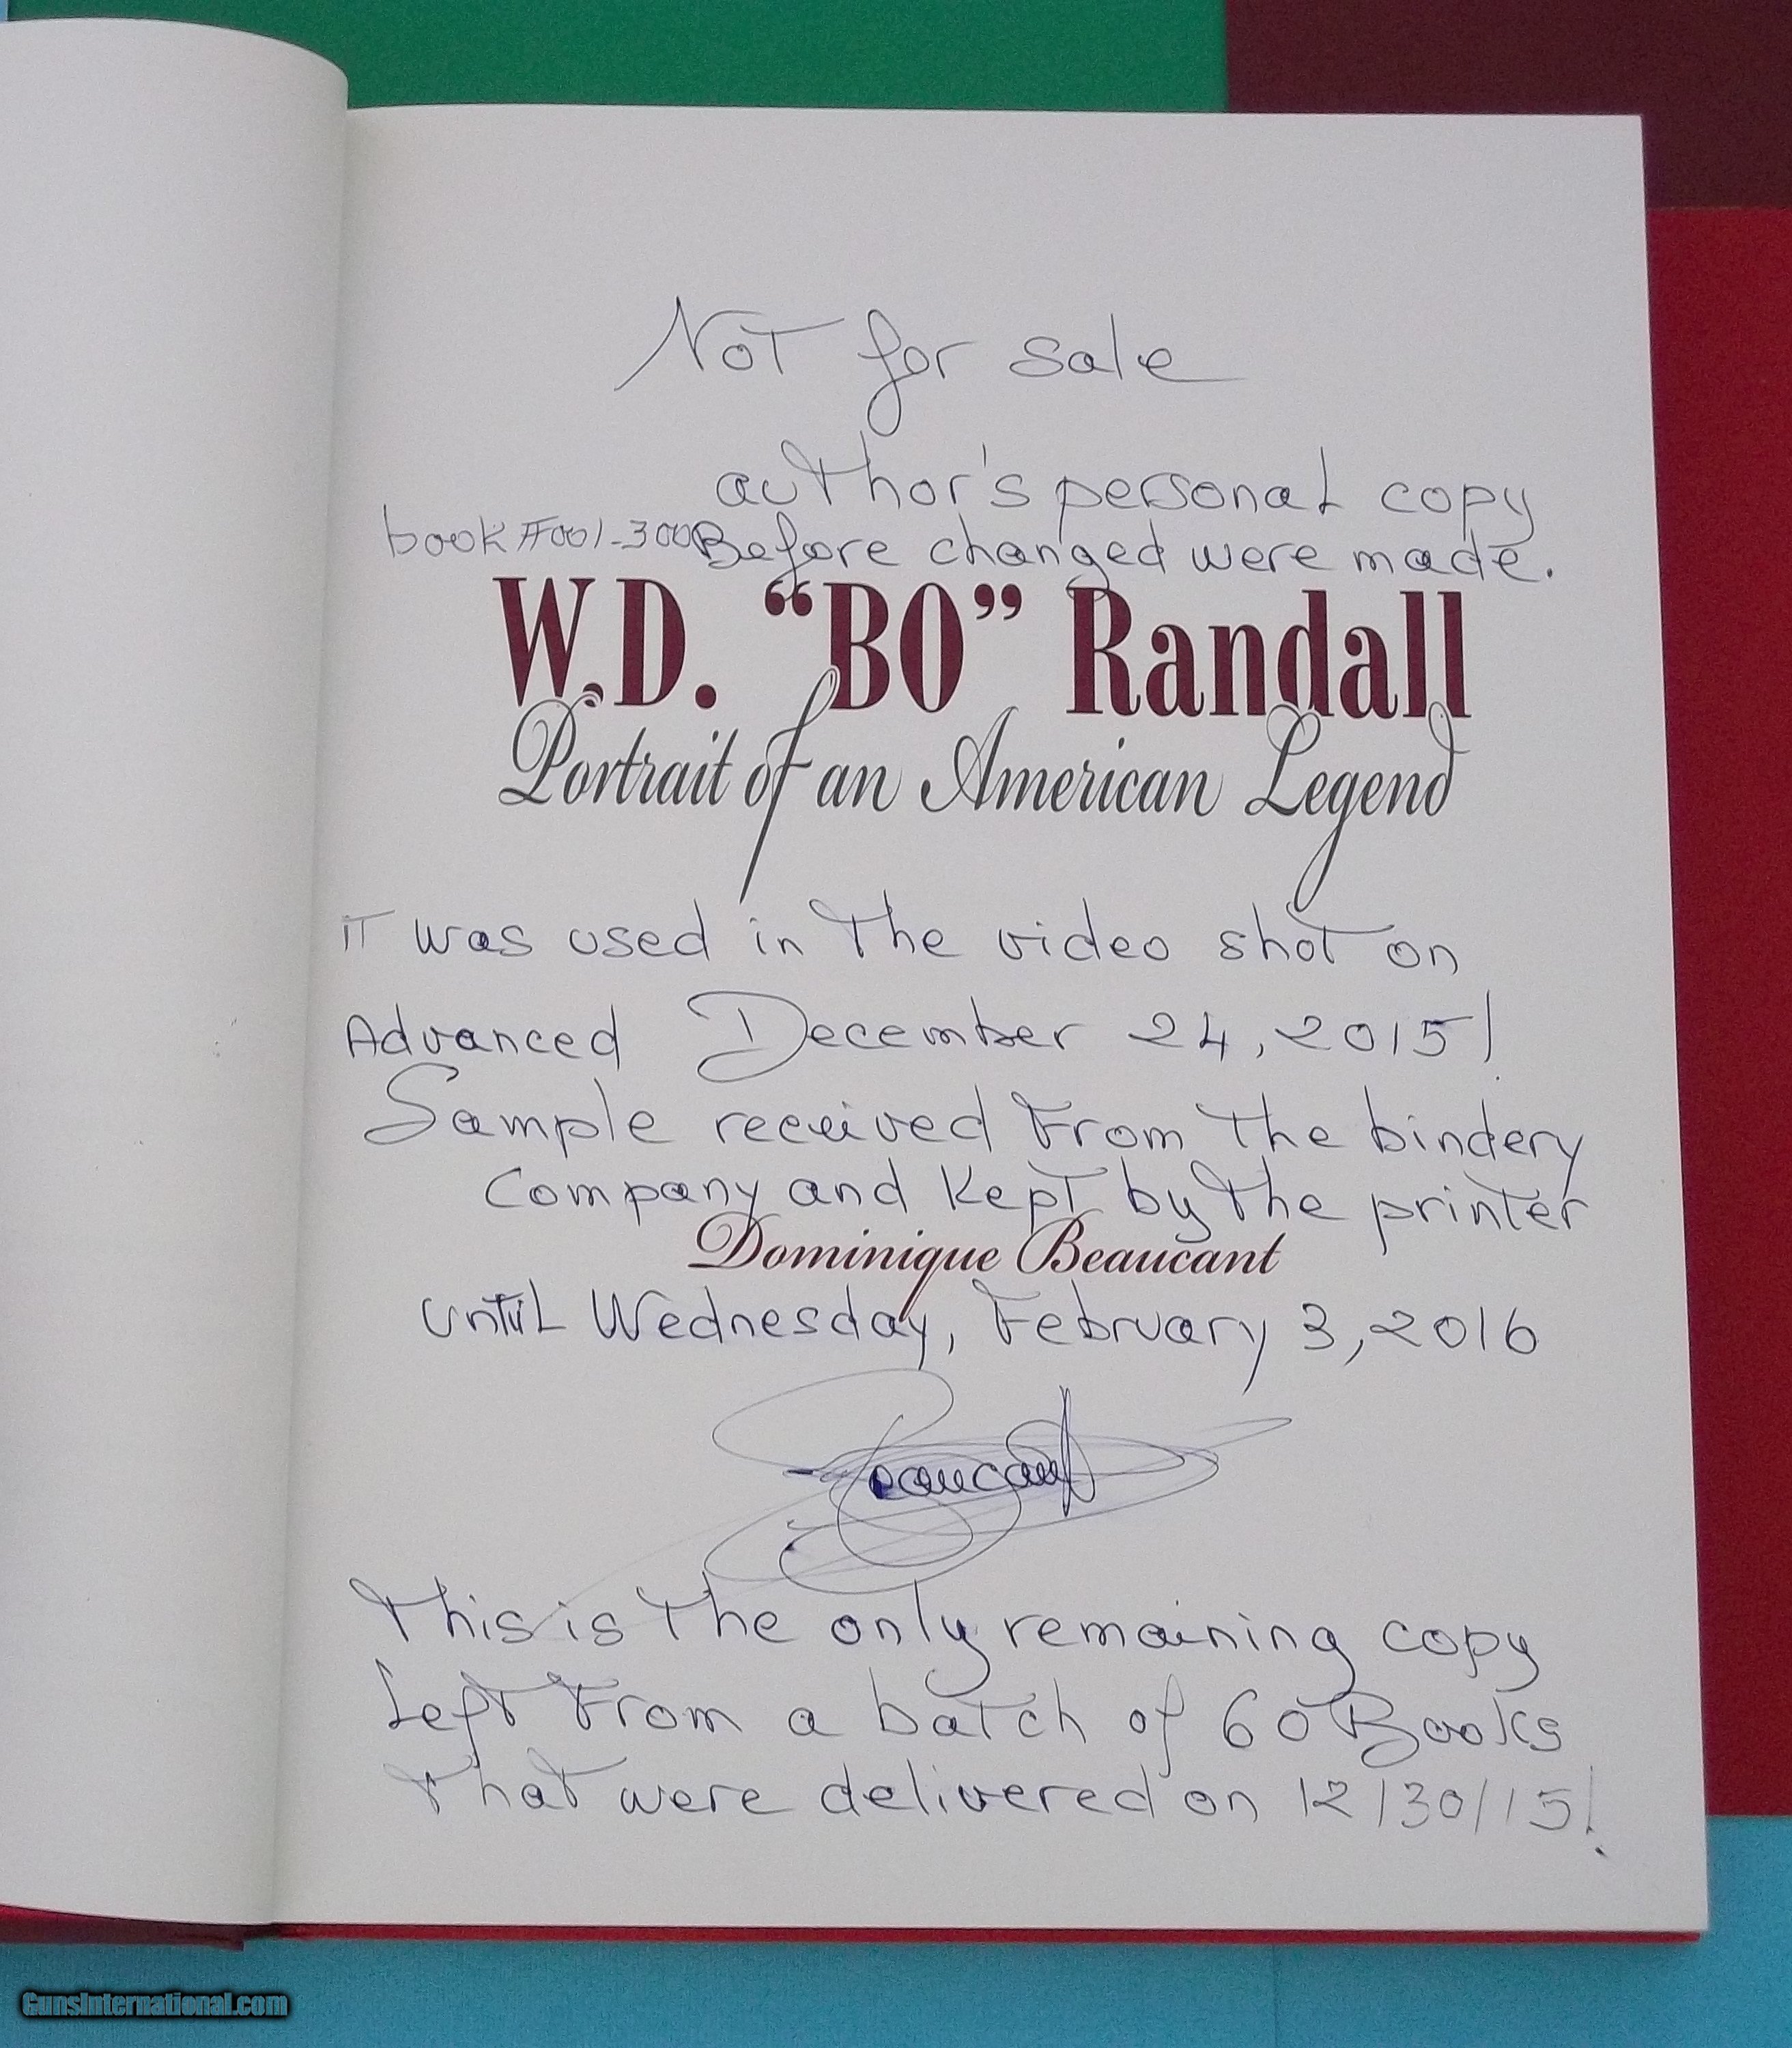 Not for sale
author's personal copy
book #001-3000 Before changed were made.
W.D. “BO” Randall
Portrait of an American Legend
IT was used in The video shot on
Advanced December 24, 2015!
Sample received From The bindery
Company and Kept by The printer
Dominique Beaucant
until Wednesday, February 3, 2016
Beaucant
This is The only remaining copy
Left From a batch of 60 Books
That were delivered on 12/30/15!
GunsInternational.com